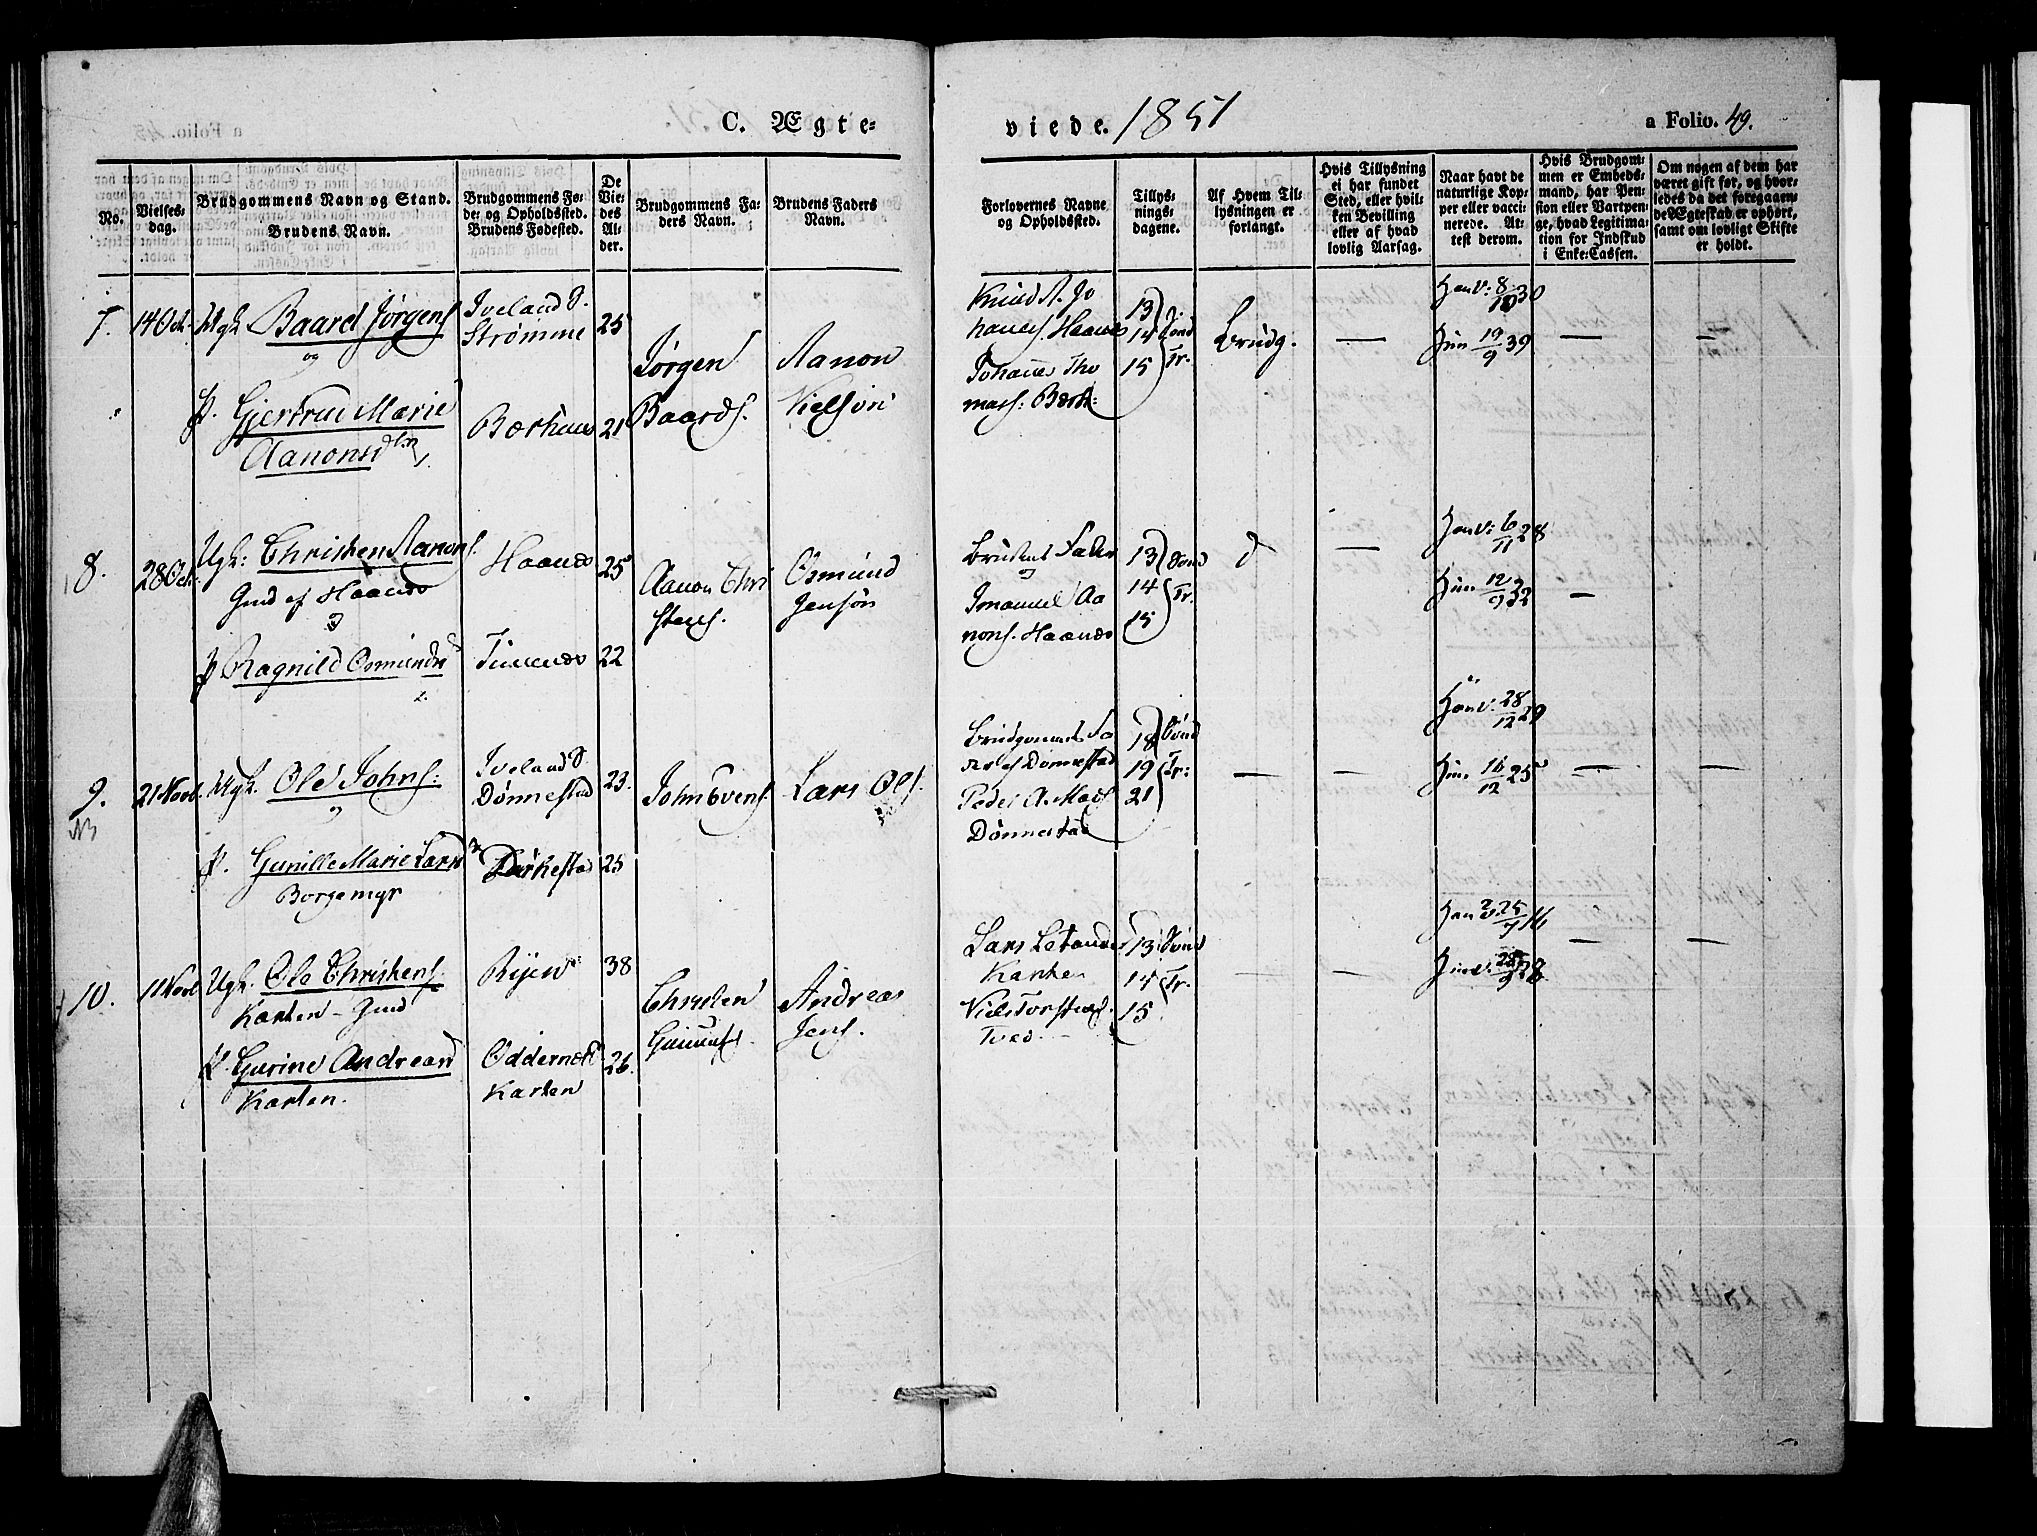 C. Ægte-
viede. 1851
a Folio. 49.
No.
Vielses-
dag.
Brudgommens Navn og Stand.
Brudens Navn.
Brudgommens Fø-
de- og Opholdssted.
Brudens Fødested.
De
Vie-
des
Al-
der.
Brudgommens Fa-
ders Navn.
Brudens Faders
Navn.
Forlovernes Navne
og Opholdssted.
Tillys-
nings-
dagene.
Af Hvem Til-
lysningen er
forlangt.
Hvis Tillysning
ei har fundet
Sted, eller hvil-
ken Bevilling
eller af hvad
lovlig Aarsag.
Naar havt de
naturlige Kop-
per eller vacci-
nerede. At-
test derom.
Hvis Brudgom-
men er Embeds-
mand, har Pen-
sion eller Vartpen-
ge, hvad Legitima-
tion for Indskud
i Enke-Cassen.
Om nogen af dem har
været gift før, og hvor-
ledes da det foregaaen-
de Ægteskab er ophørt,
samt om lovligt Skifte
er holdt.
7. 14 Oct. Ungk. Baard Jørgens
og
P. Gjertrud Marie
Aanonsd
Iveland S.
Strømme 25
Bærhuus 21
Jørgen
Baards.
Aanon
Nielsøn
Knud A. Jo
hannes. Haanes
Johannes Tho
mass: Bærh:
13
14
15
Sønd
Tr.
Brudg.
—
Han v: 8/10 30
Hun 19/9 39
—
—
8. 28 Oct. Ugk: Christen Aanons.
Gmd af Haanes
og
P Ragnild Osmunds
Haanes 25
Timenes 22
Aanon Chri
stens.
Osmund
Jensøn
Brudens Fader
og
Imanuel Aa
nons. Haanes
13
14
15
Sønd
Tr.
d
—
Han v: 6/11 28
Hun 12/9 32
—
9. 21 Novb. Ungk. Ole Johns:
og
NB
P. Gunille Marie Larsd
Borgemyr
Iveland S
Dønnestad 23.
Birkestad 25
John Evens.
Lars Ols.
Brudgommens Fa
der af Dønnestad
Peder A. Mads
Dønnestad
18
19
21
Sønd
Tr:
—
—
Han v. 28/12 29
Hun 16/12 25
—
—
10. 11 Novb Ugk. Ole Christens.
Karten - Gmd
P. Gurine Andreasd
Karten.
Ryen 38
Oddernes
Karten 26.
Christen
Gunnufs.
Andreas
Jens.
Lars
Karten
Niels Torstens.
Tved.
13
14
15
Sønd
Tr.
—
—
Han v. 25/7 16
Hun v. 28/9 28
—
—